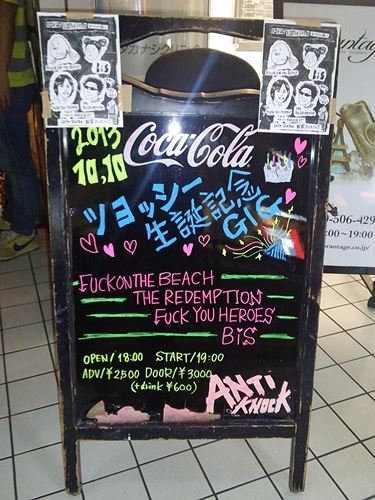 2013
10,10
Coca-Cola
ツヨッシー
生誕記念
GIG
FUCK ON THE BEACH
THE REDEMPTION
FUCK YOU HEROES
BiS
OPEN/18:00 START/19:00
ADV/¥2,500 DOOR/¥3,000
(+drink ¥600)
ANTI
KNOCK